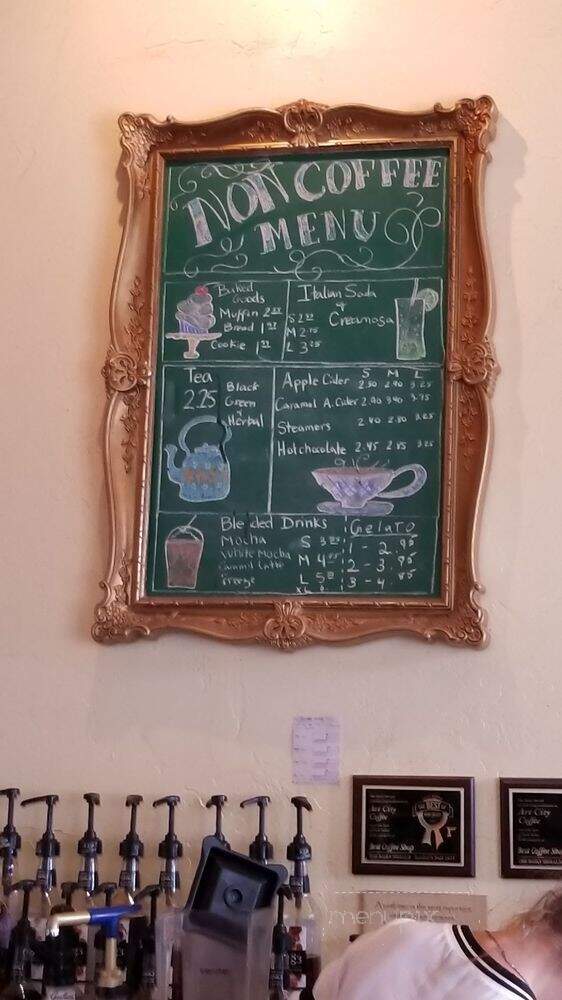 NON COFFEE
MENU
Baked
Goods
Muffin
Bread
Cookie
Italian Soda
&
Cremosa
S
M 2.75
L 3.25
Tea
2.25
Black
Green
&
Herbal
S M L
Apple Cider 2.50 2.90 3.25
Caramel A. Cider 2.90 3.40 3.75
Steamers 2.40 2.80 3.25
Hot chocolate 2.45 2.85 3.25
Blended Drinks
Mocha
White Mocha
Caramel Latte
Freeze
S
M
L
XL
Gelato
1 - 2.95
2 - 3.95
3 - 4.85
Ave City
Coffee
THE BEST OF
Best Coffee Shop
Coffee
Best Coffee Shop
menupix